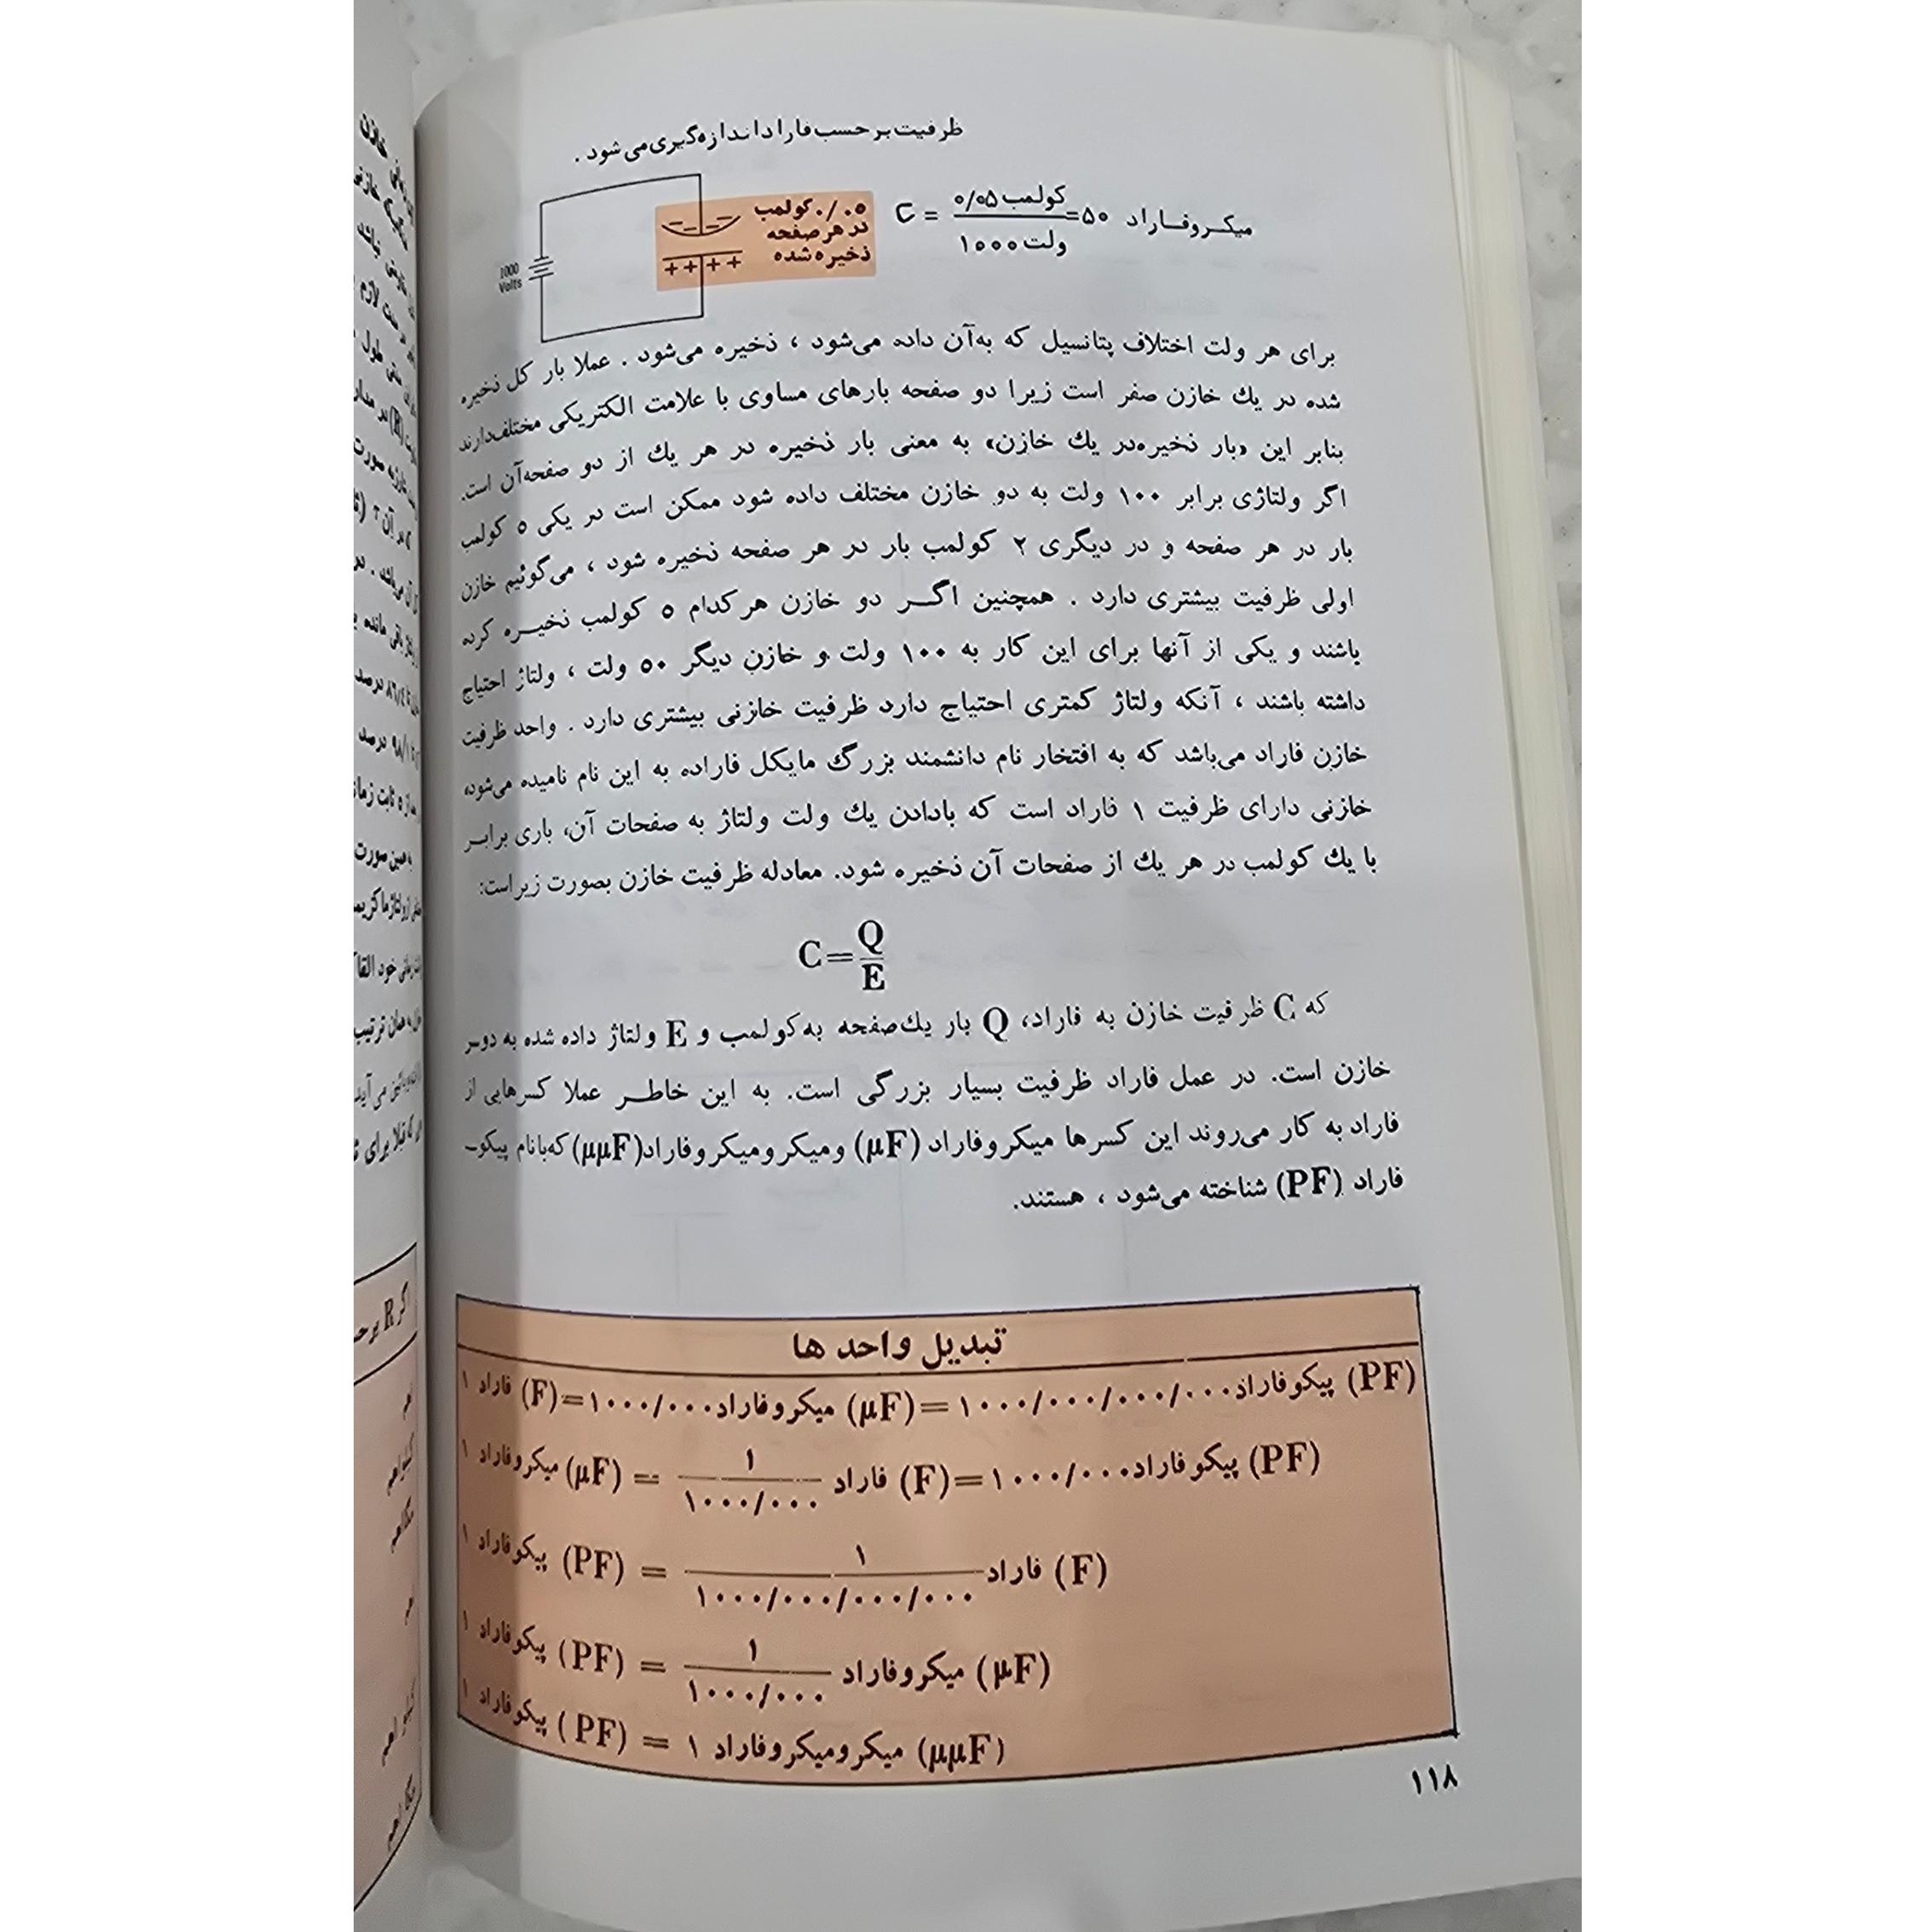 ظرفیت بر حسب فاراد اندازه‌گیری می‌شود .
1000
Volts
۰/۰۵ کولمب
در هر صفحه
ذخیره شده
C = کولمب ۰/۰۵ / ولت ۱۰۰۰ = ۵۰ میکروفاراد
برای هر ولت اختلاف پتانسیل که به‌آن داده می‌شود ، ذخیره می‌شود . عملا بار کل ذخیره
شده در یك خازن صفر است زیرا دو صفحه بارهای مساوی با علامت الکتریکی مختلف‌دارند
بنابر این «بار ذخیره‌در یك خازن» به معنی بار ذخیره در هر یك از دو صفحه‌آن است.
اگر ولتاژی برابر ۱۰۰ ولت به دو خازن مختلف داده شود ممکن است در یکی ۵ کولمب
بار در هر صفحه و در دیگری ۲ کولمب بار در هر صفحه ذخیره شود ، می‌گوئیم خازن
اولی ظرفیت بیشتری دارد . همچنین اگر دو خازن هرکدام ۵ کولمب ذخیره کرده
باشند و یکی از آنها برای این کار به ۱۰۰ ولت و خازن دیگر ۵۰ ولت ، ولتاژ احتیاج
داشته باشند ، آنکه ولتاژ کمتری احتیاج دارد ظرفیت خازنی بیشتری دارد . واحد ظرفیت
خازن فاراد می‌باشد که به افتخار نام دانشمند بزرگ مایکل فاراده به این نام نامیده می‌شود،
خازنی دارای ظرفیت ۱ فاراد است که بادادن یك ولت ولتاژ به صفحات آن، باری برابر
با یك کولمب در هر یك از صفحات آن ذخیره شود. معادله ظرفیت خازن بصورت زیر است:
C=Q/E
که C ظرفیت خازن به فاراد، Q بار یك‌صفحه به‌کولمب و E ولتاژ داده شده به دوسر
خازن است. در عمل فاراد ظرفیت بسیار بزرگی است. به این خاطر عملا کسرهایی از
فاراد به کار می‌روند این کسرها میکروفاراد (μF) ومیکرومیکروفاراد(μμF) که‌با‌نام پیکو-
فاراد (PF) شناخته می‌شود ، هستند.
تبدیل واحد ها
۱ فاراد (F)=۱۰۰۰/۰۰۰میکروفاراد (μF)=۱۰۰۰/۰۰۰/۰۰۰/۰۰۰پیکوفاراد (PF)
۱ میکروفاراد (μF) = ۱ / ۱۰۰۰/۰۰۰ فاراد (F)=۱۰۰۰/۰۰۰پیکوفاراد (PF)
۱ پیکوفاراد (PF) = ۱ / ۱۰۰۰/۰۰۰/۰۰۰/۰۰۰ فاراد (F)
۱ پیکوفاراد (PF) = ۱ / ۱۰۰۰/۰۰۰ میکروفاراد (μF)
۱ پیکوفاراد (PF) = ۱ میکرومیکروفاراد (μμF)
۱۱۸